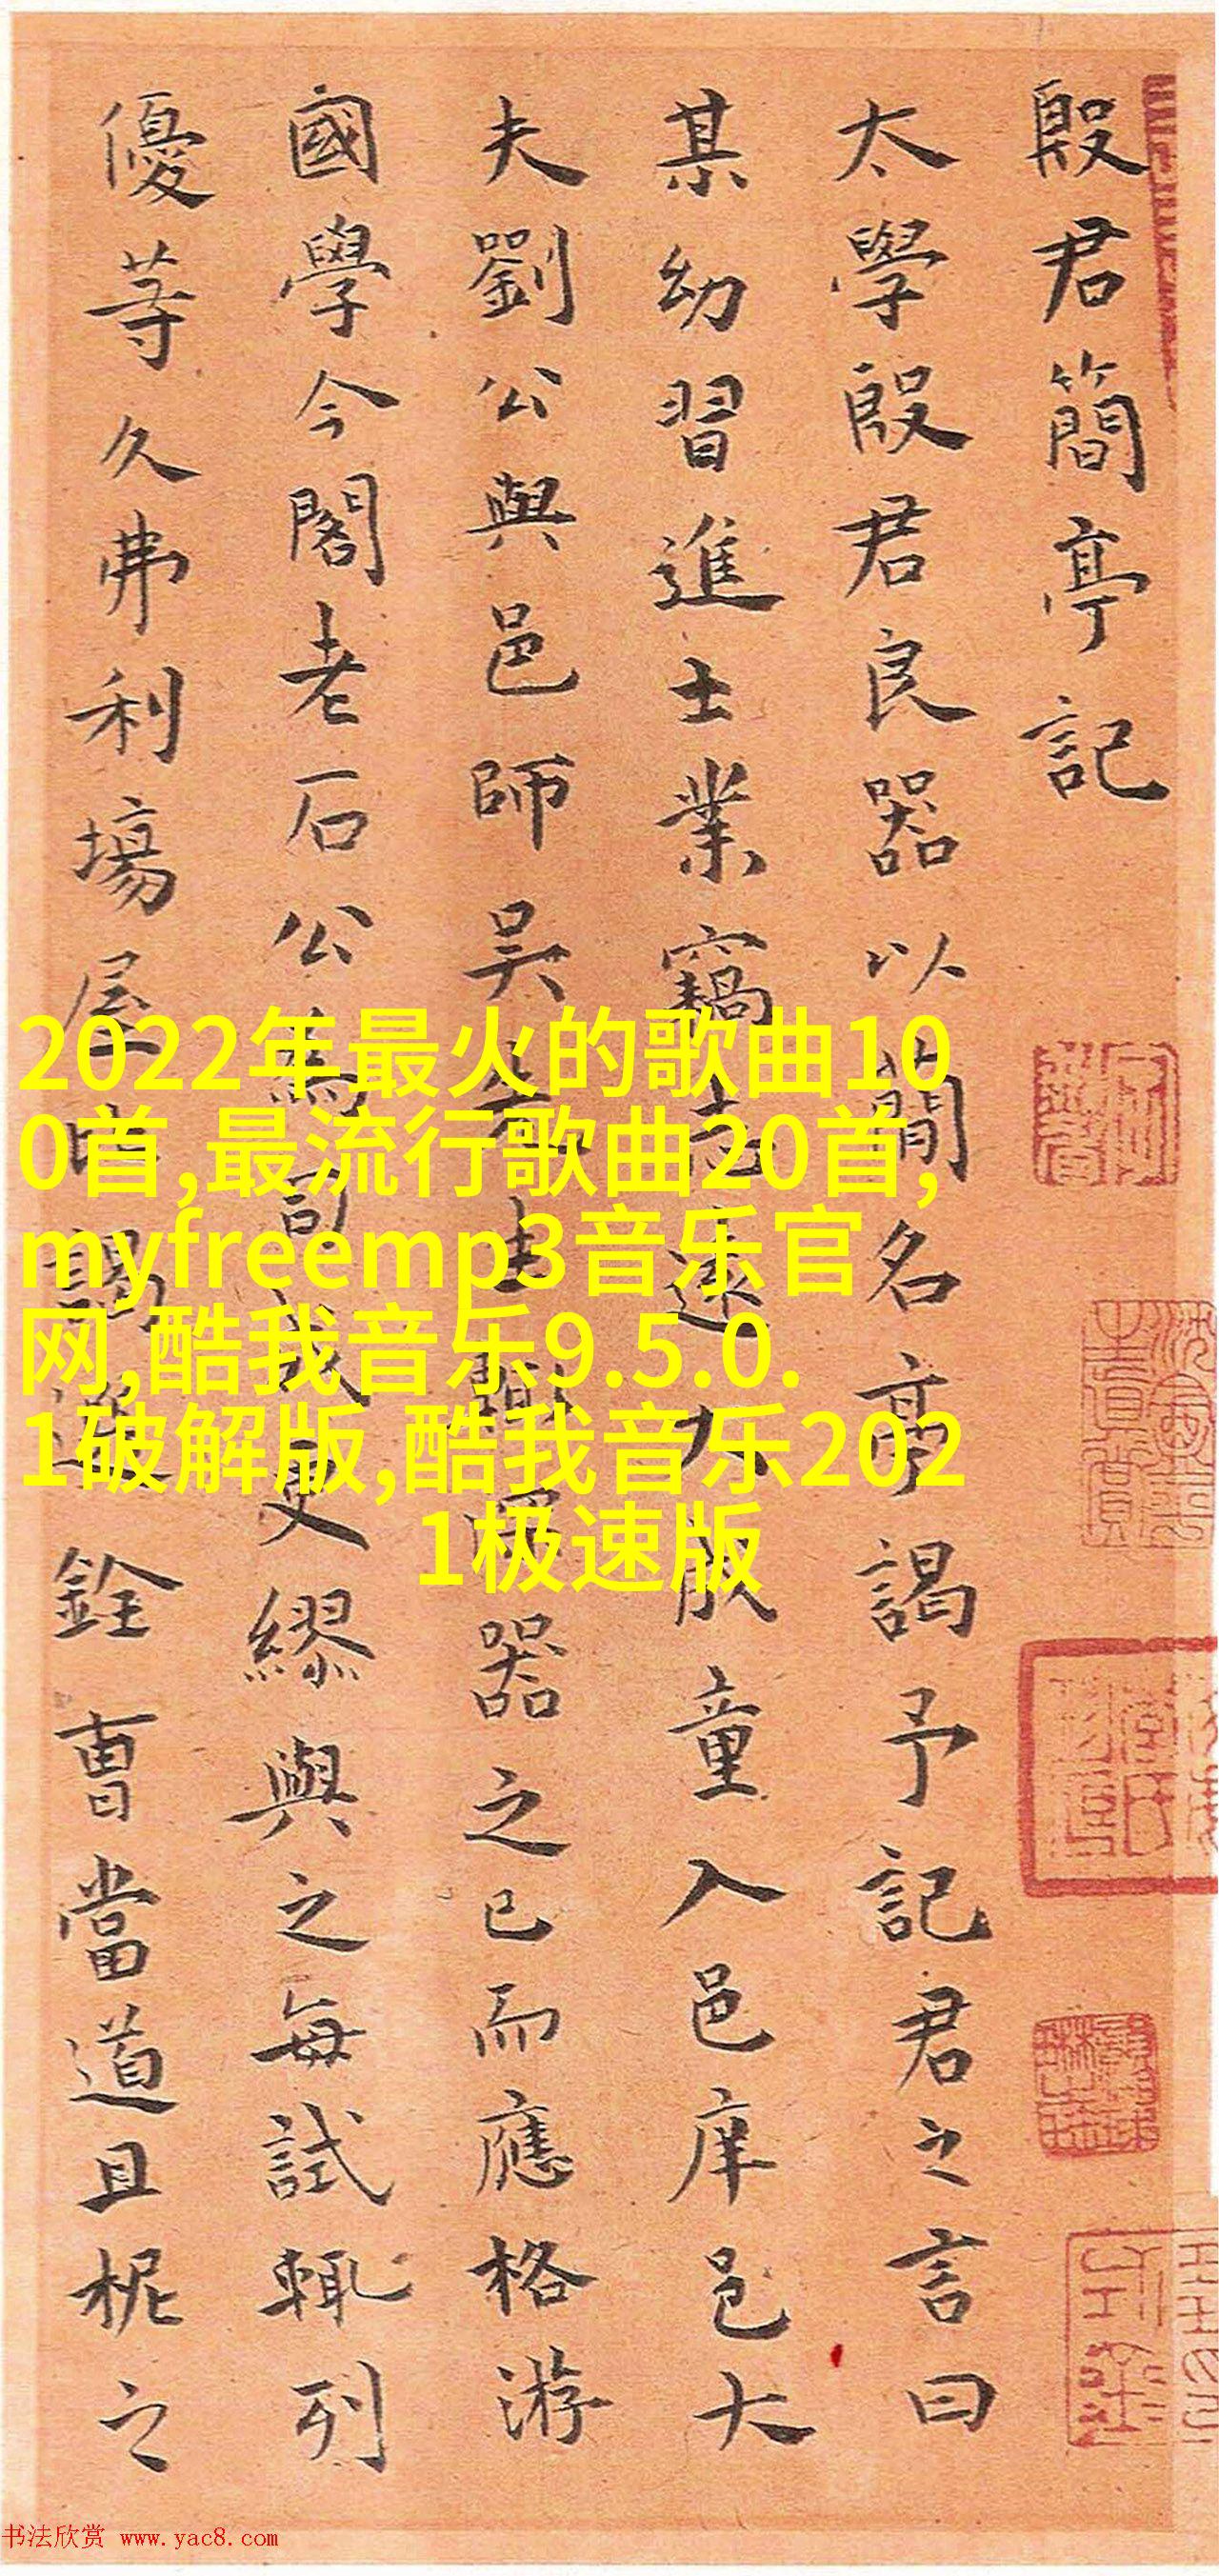 殷君簡亭記
太學殷君良器以簡名亭謁予記君之言曰
某幼習進士業竊志遠大散童入邑庠邑大
夫劉公與邑師吴
器之已而應格游
國學今閣老石公
更繆與之每試輒列
優等久弗利場屋
銓曺當道且柅之
2022年最火的歌曲10
0首,最流行歌曲20首,
myfreemp3音乐官
网,酷我音乐9.5.0.
1破解版,酷我音乐202
1极速版
书法欣赏 www.yac8.com